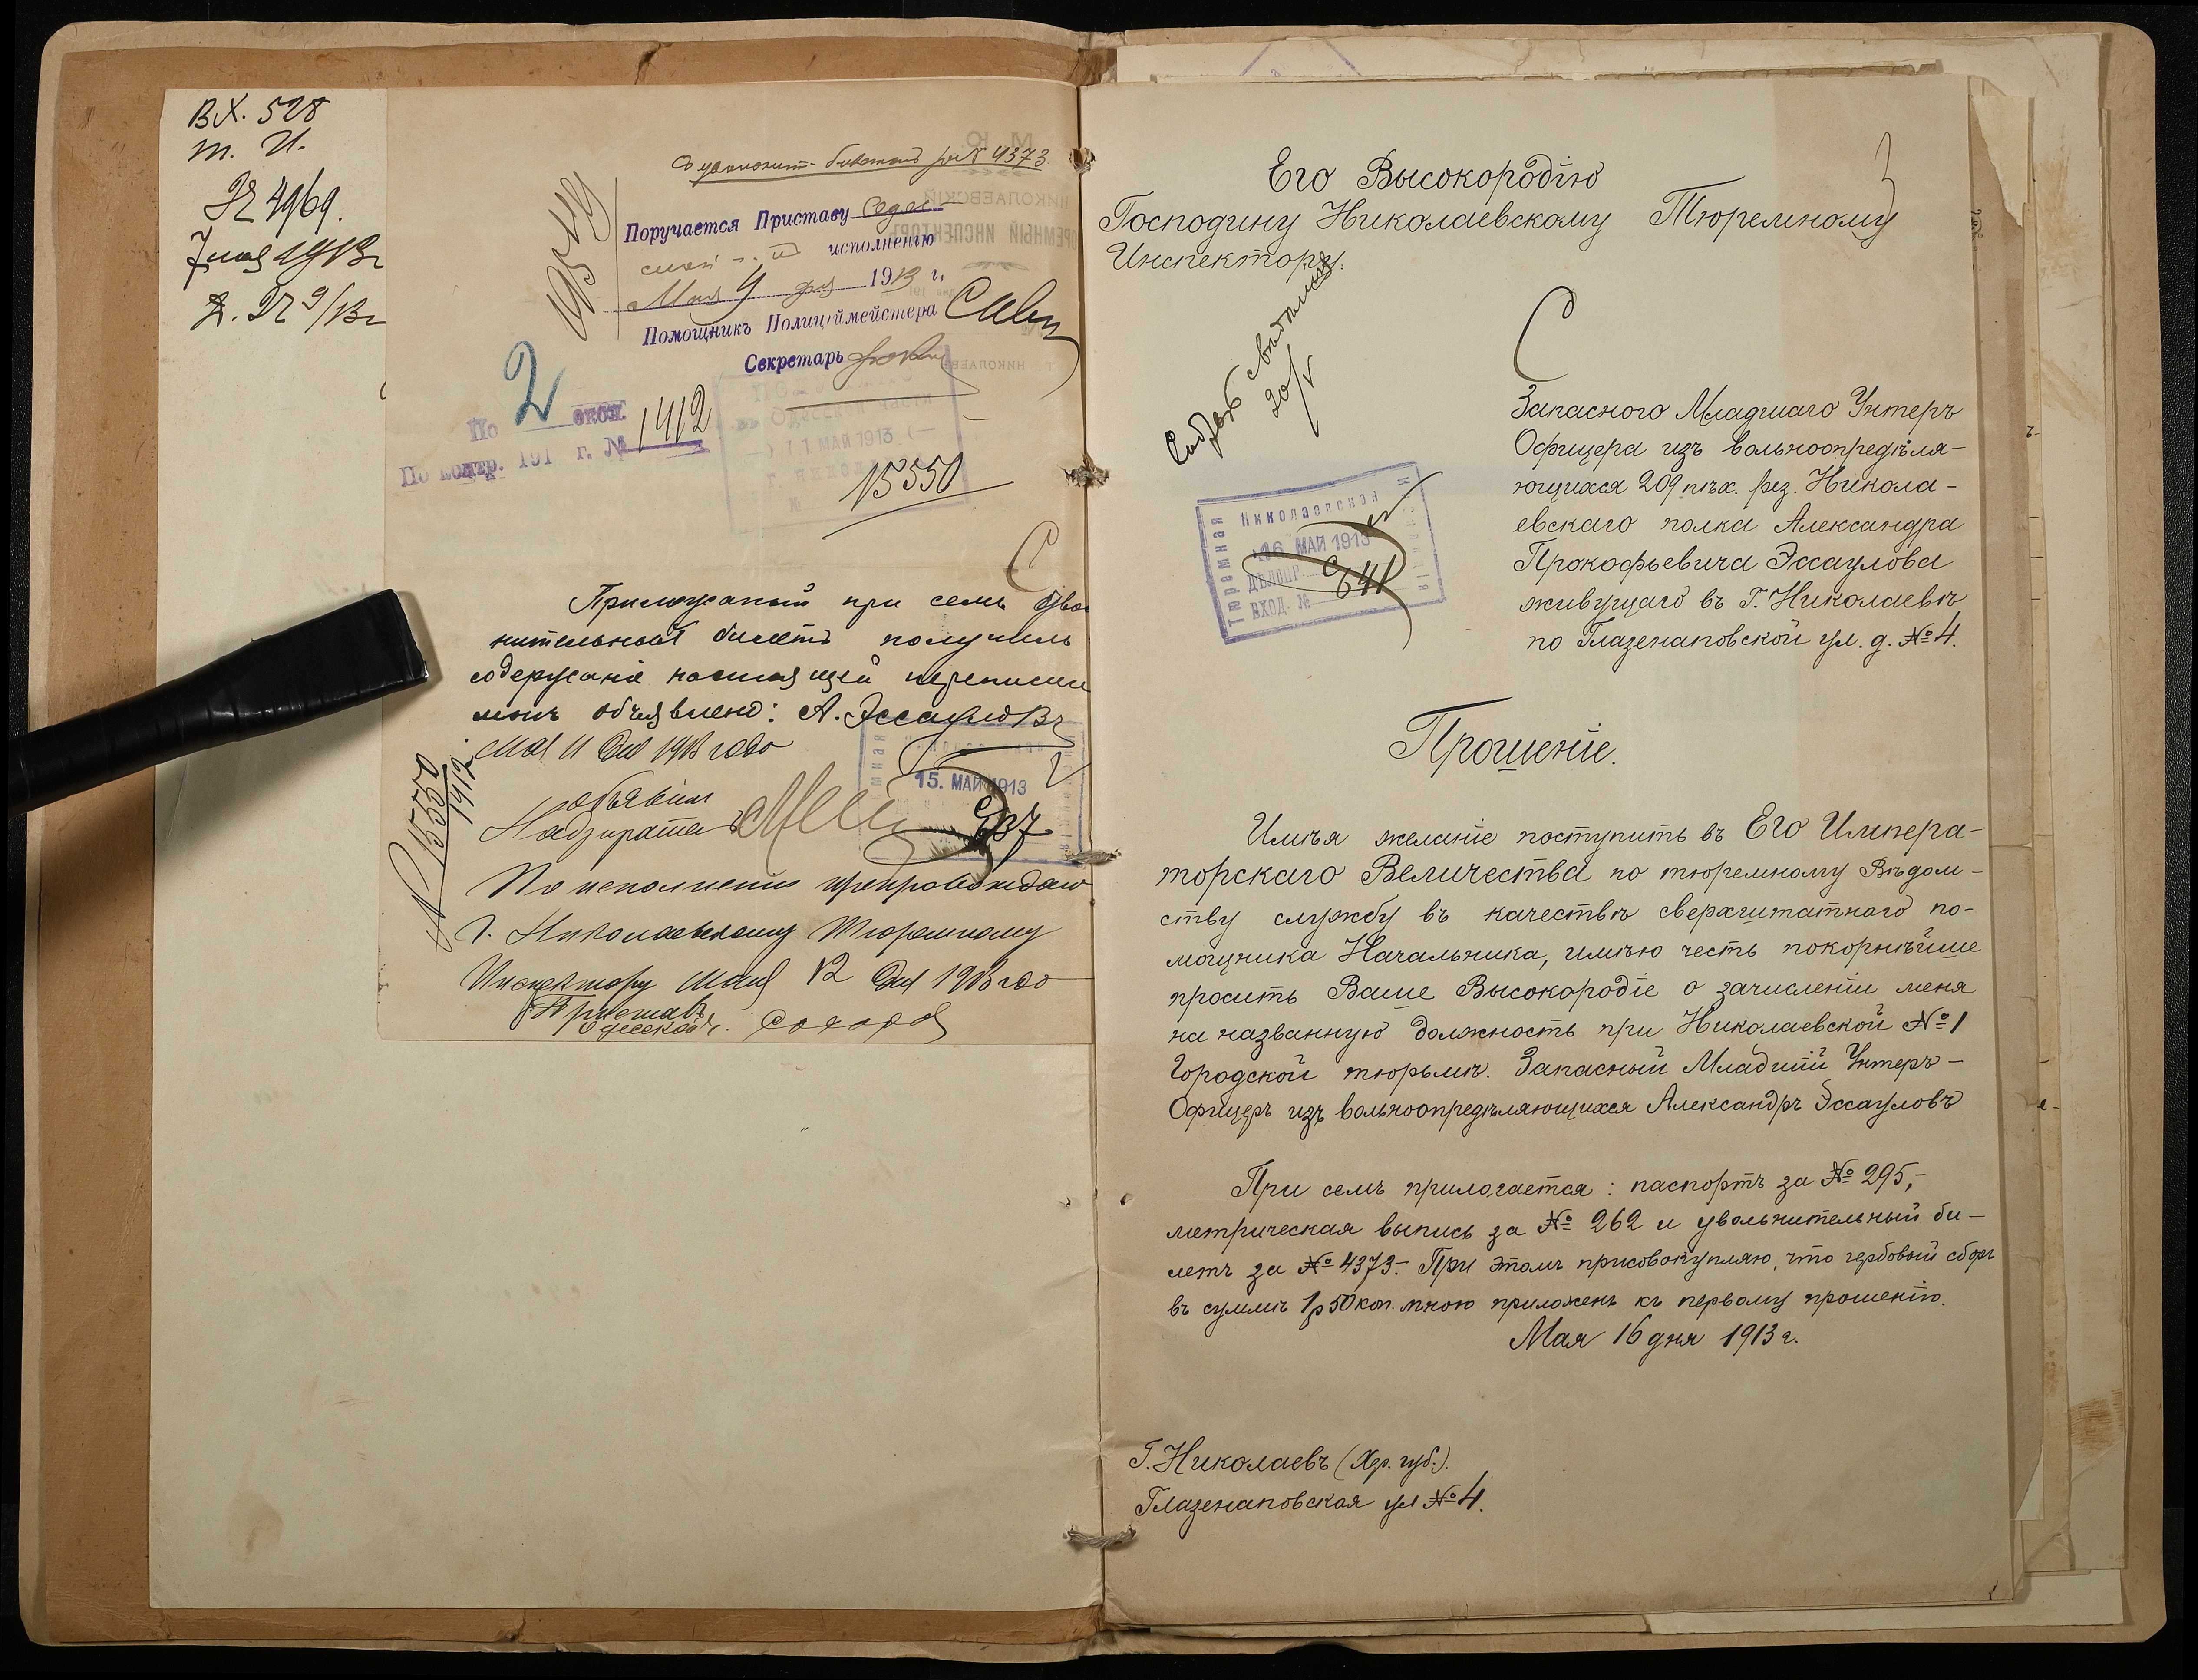 ВХ. 528
т. И.
№ 4969.
7 мая 1913 г
Д. № 9/13 г
Съ увольнит. билетомъ за № 4373
Поручается Приставу Одес.
исполненію
Мая 9 дня 1913 г.
Помощникъ Полиціймейстера
Секретарь
По 2 экон.
По контр. 191 г. № 1412
11 МАЯ 1913
№ 15550
Приложеный при семъ уволь
нительный билетъ получилъ
содержаніе настоящей переписки
мнѣ объявлено: А. Эссауловъ
Мая 11 дня 1913 года
объявилъ
Надзиратель
15. МАЙ 1913
637
№ 15550
1912
По исполненіи препровождаю
Г. Николаевскому Тюремному
Инспектору Мая 12 дня 1913 года
Приставъ
Одесской ч.
Его Высокородію
Господину Николаевскому Тюремному
Инспектору.
20/V
Николаевская
Тюремная
16 МАЙ 1913
ВХОД. № 641
Запаснаго Младшаго Унтеръ
Офицера изъ вольноопредѣля-
ющихся 209 пѣх. рез. Никола-
евскаго полка Александра
Прокофьевича Эссаулова
живущаго въ Г. Николаевѣ
по Глазенаповской ул. д. № 4.
Прошеніе.
Имѣя желаніе поступить въ Его Импера-
торскаго Величества по тюремному Вѣдом-
ству службу въ качествѣ сверхштатнаго по-
мощника Начальника, имѣю честь покорнѣйше
просить Ваше Высокородіе о зачисленіи меня
на названную должность при Николаевской № 1
Городской тюрьмѣ. Запасный Младшій Унтеръ-
Офицеръ изъ вольноопредѣляющихся Александръ Эссауловъ
При семъ прилагается: паспортъ за № 295,-
метрическая выпись за № 262 и увольнительный би-
летъ за № 4373.- При этомъ присовокупляю, что гербовый сборъ
въ суммѣ 1р 50 коп. мною приложенъ къ первому прошенію.
Мая 16 дня 1913 г.
Г. Николаевъ (Хер. губ.).
Глазенаповская ул № 4.